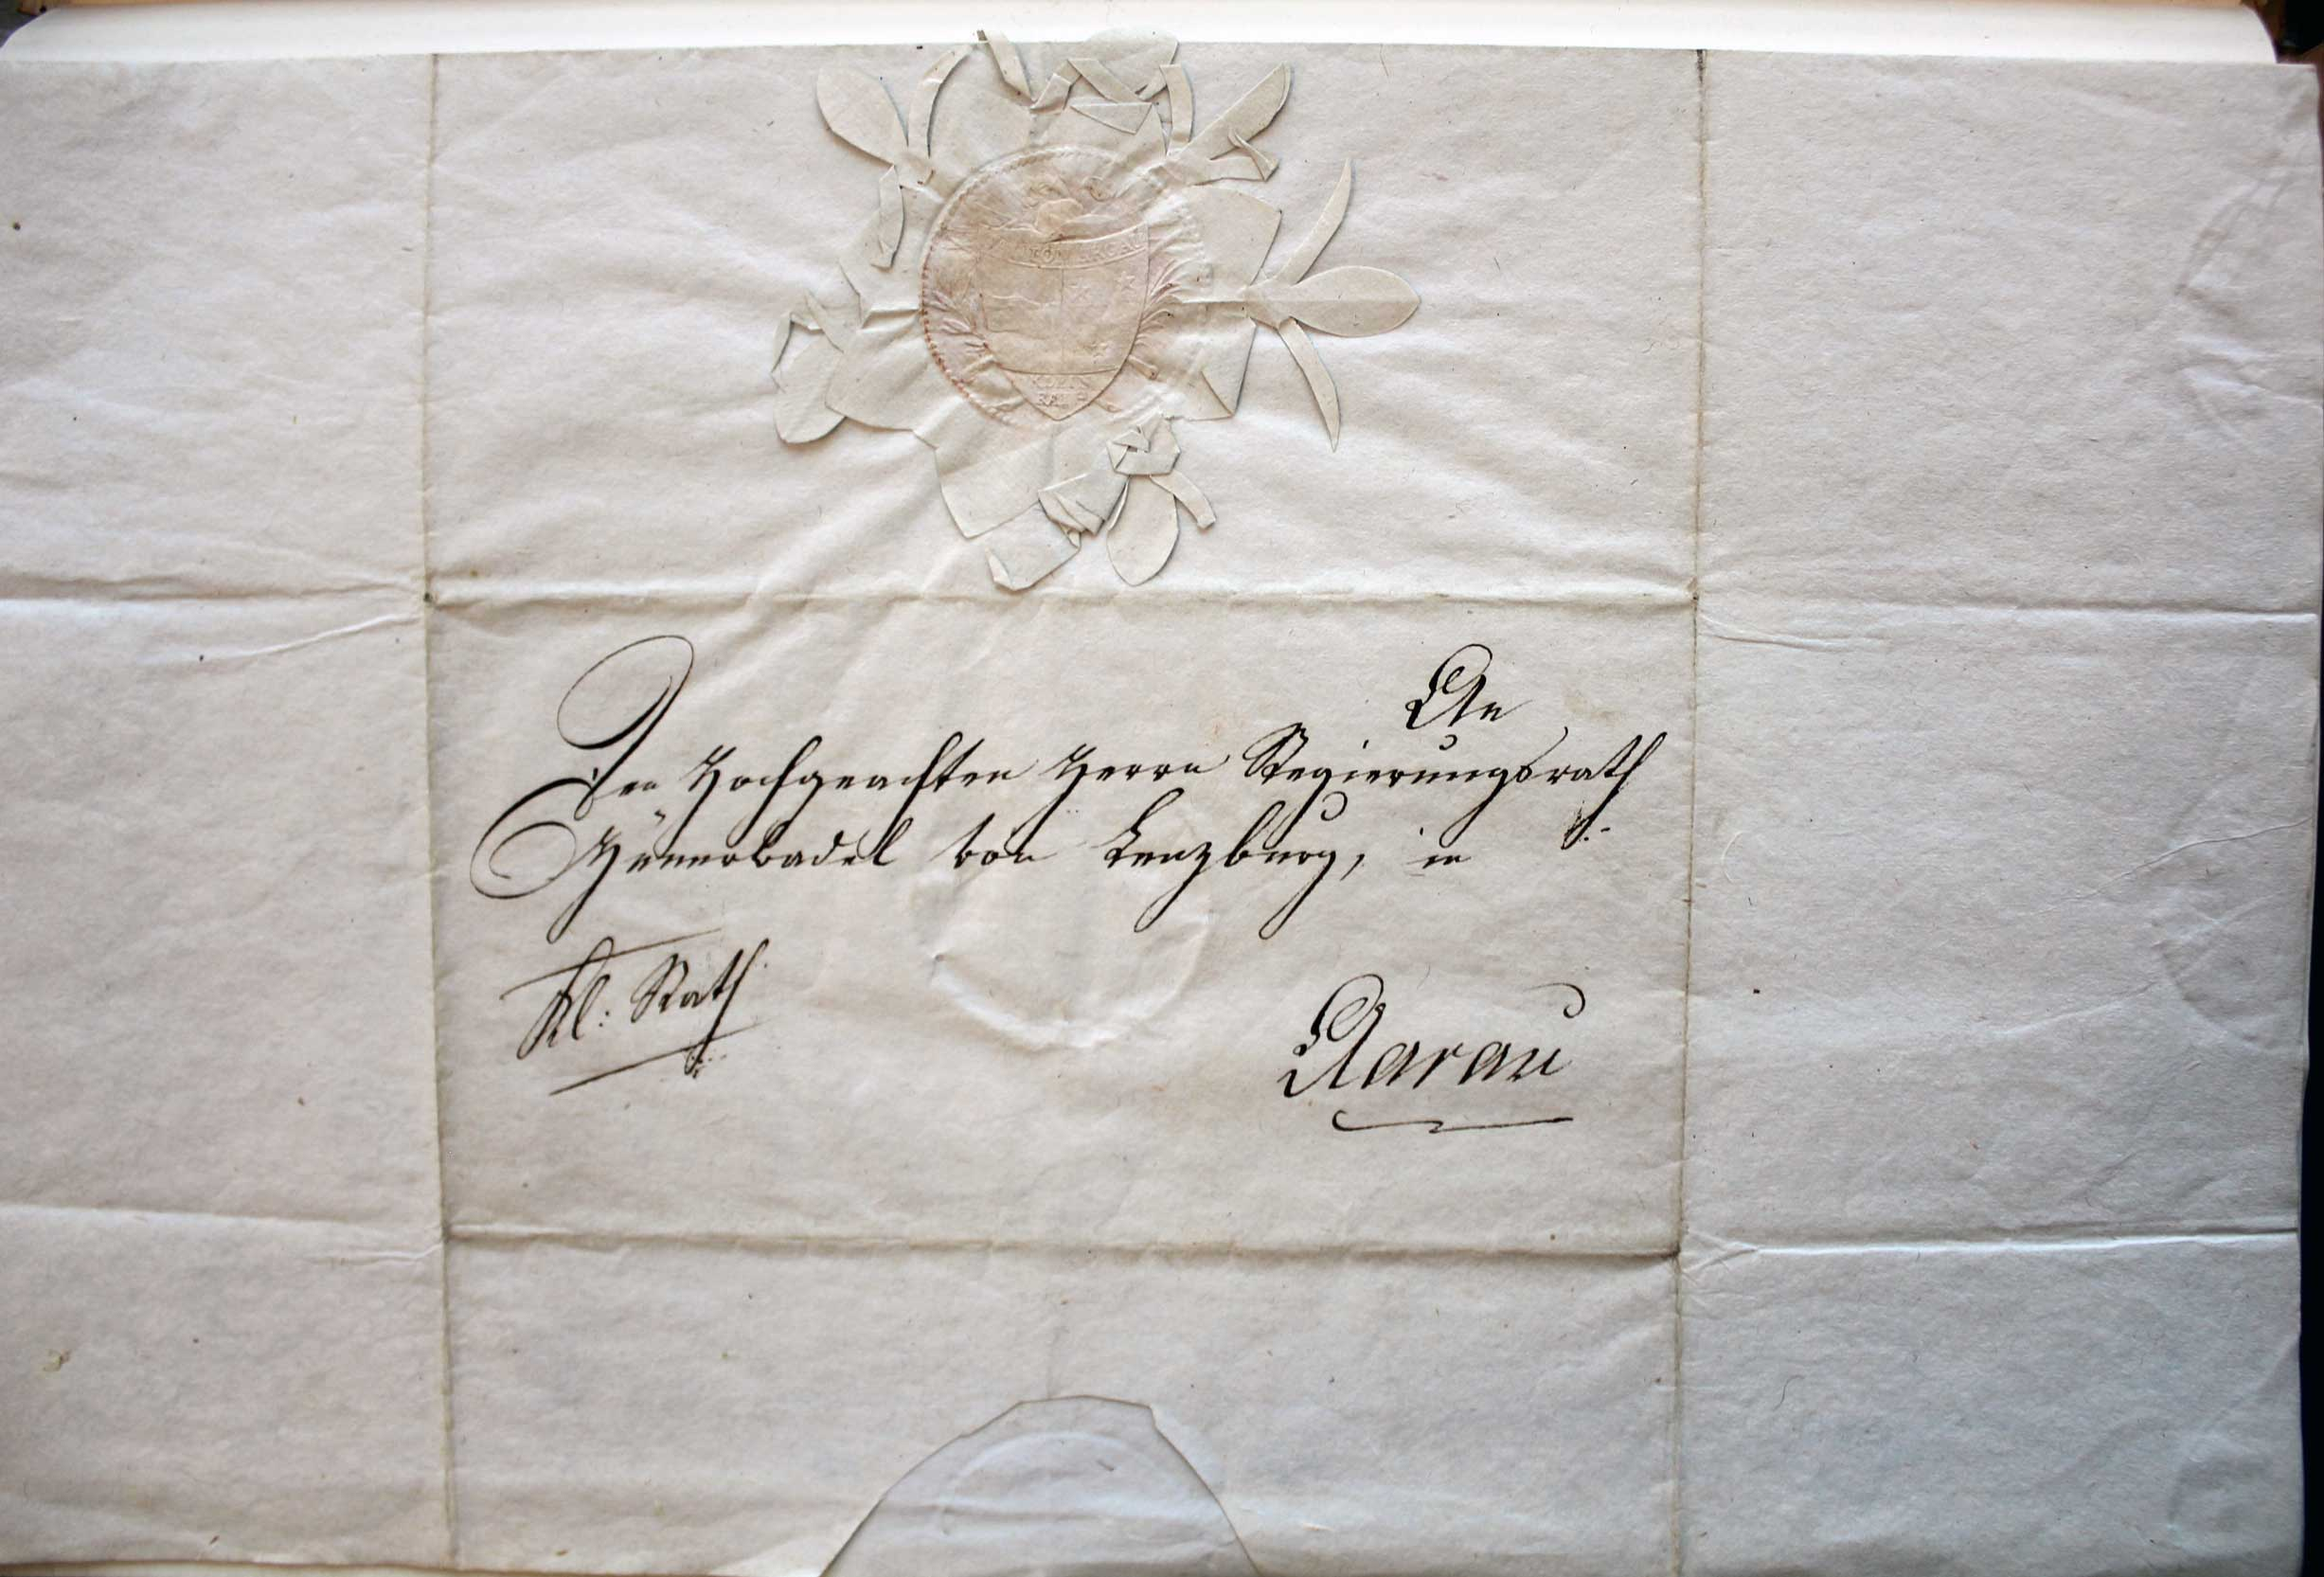 CANTON ARGAU
KLEIN
RATH
An
Den Hochgeachten Herrn Regierungsrath
Hünerwadel von Lenzburg, in
Kl: Rath
Aarau